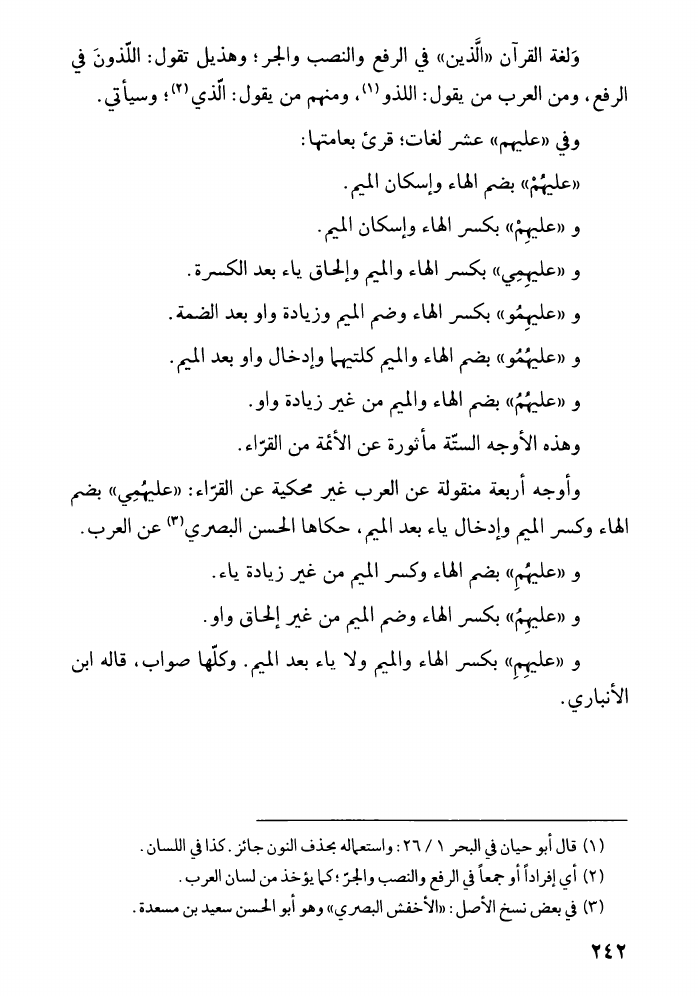 وَلغة القرآن «الَّذين» في الرفع والنصب والجر؛ وهذيل تقول: اللّذونَ في
الرفع، ومن العرب من يقول: اللذو(١)، ومنهم من يقول: الّذي(٢)؛ وسيأتي.
وفي «عليهم» عشر لغات؛ قرئ بعامتها:
«عليهُمْ» بضم الهاء وإسكان الميم.
و «عليهِمْ» بكسر الهاء وإسكان الميم.
و «عليهِمِي» بكسر الهاء والميم وإلحاق ياء بعد الكسرة.
و «عليهِمُو» بكسر الهاء وضم الميم وزيادة واو بعد الضمة.
و «عليهُمُو» بضم الهاء والميم كلتيهما وإدخال واو بعد الميم.
و «عليهُمُ» بضم الهاء والميم من غير زيادة واو.
وهذه الأوجه الستّة مأثورة عن الأئمة من القرّاء.
وأوجه أربعة منقولة عن العرب غير محكية عن القرّاء: «عليهُمِي» بضم
الهاء وكسر الميم وإدخال ياء بعد الميم، حكاها الحسن البصري(٣) عن العرب.
و «عليهُمِ» بضم الهاء وكسر الميم من غير زيادة ياء.
و «عليهِمُ» بكسر الهاء وضم الميم من غير إلحاق واو.
و «عليهِمِ» بكسر الهاء والميم ولا ياء بعد الميم. وكلّها صواب، قاله ابن
الأنباري.
(١) قال أبو حيان في البحر ١ / ٢٦: واستعماله بحذف النون جائز. كذا في اللسان.
(٢) أي إفراداً أو جمعاً في الرفع والنصب والجرّ؛ كما يؤخذ من لسان العرب.
(٣) في بعض نسخ الأصل: «الأخفش البصري» وهو أبو الحسن سعيد بن مسعدة.
٢٤٢